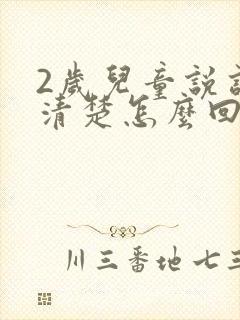 2歲兒童說
清楚怎麼回
川三番地七三